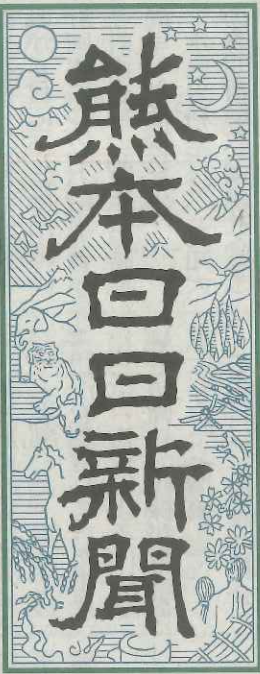 熊本日日新聞